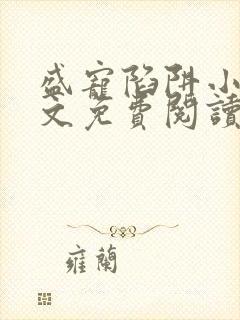 盛寵陷阱小
文免費閱讀
雍蘭